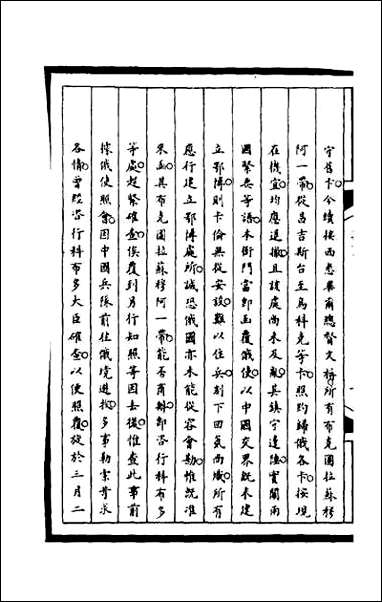 守舊卡今續接西悉畢爾總督文稱所有布克圖拉蘇穆
阿一帶從昌吉斯台至烏科克等卡照約歸俄各卡按現
在機宜均應退撤且該處尚未及𢿙其鎮守邊陲實關兩
國緊要等語本衙門當即函覆俄使以中國交界既未建
立鄂博則卡倫無從安設難以住兵刻下回氣尚熾所有
應行建立鄂博處所誠恐俄國亦未能從容會勘惟既准
來函其布克圖拉蘇穆阿一帶能否商辦即咨行科布多
等處趕緊確查俟覆到另行知照等因去後惟查此事前
據俄使照會因中國兵隊前往俄境邊拟多事勒索苛求
各情曾經咨行科布多大臣確查以便照覆旋於三月二